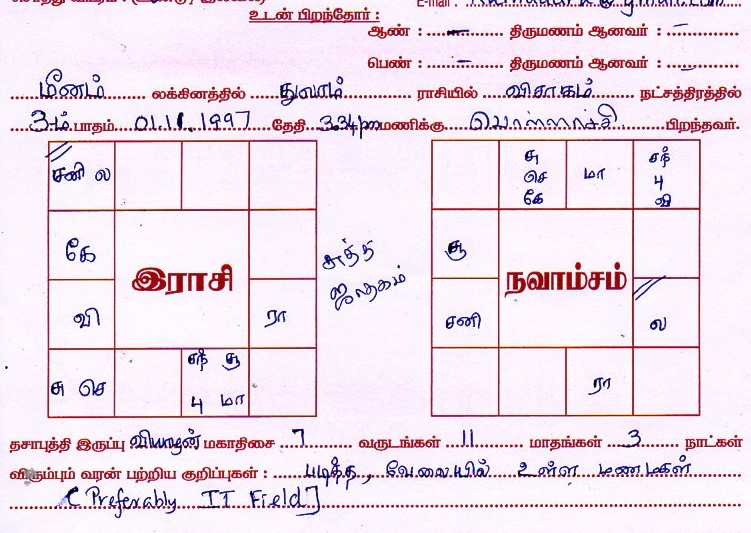 உடன் பிறந்தோர் :
ஆண் : – திருமணம் ஆனவர் : –
பெண் : – திருமணம் ஆனவர் : –
மீனம் லக்கினத்தில் துலாம் ராசியில் விசாகம் நட்சத்திரத்தில்
3-ம் பாதம் 01.11.1997 தேதி 3.34pm மணிக்கு பொள்ளாச்சி பிறந்தவர்.
சனி ல
கே
வி
சு செ
சந் சூ
4 மா
ரா
இராசி
சுத்த
ஜாதகம்
சு
செ
கே
மா
சந்
4
வி
சூ
சனி
ல
ரா
நவாம்சம்
தசாபுத்தி இருப்பு வியாழன் மகாதிசை 7 வருடங்கள் 11 மாதங்கள் 3 நாட்கள்
விரும்பும் வரன் பற்றிய குறிப்புகள் : படித்த, வேலையில் உள்ள மணமகள்
(Preferably IT Field]